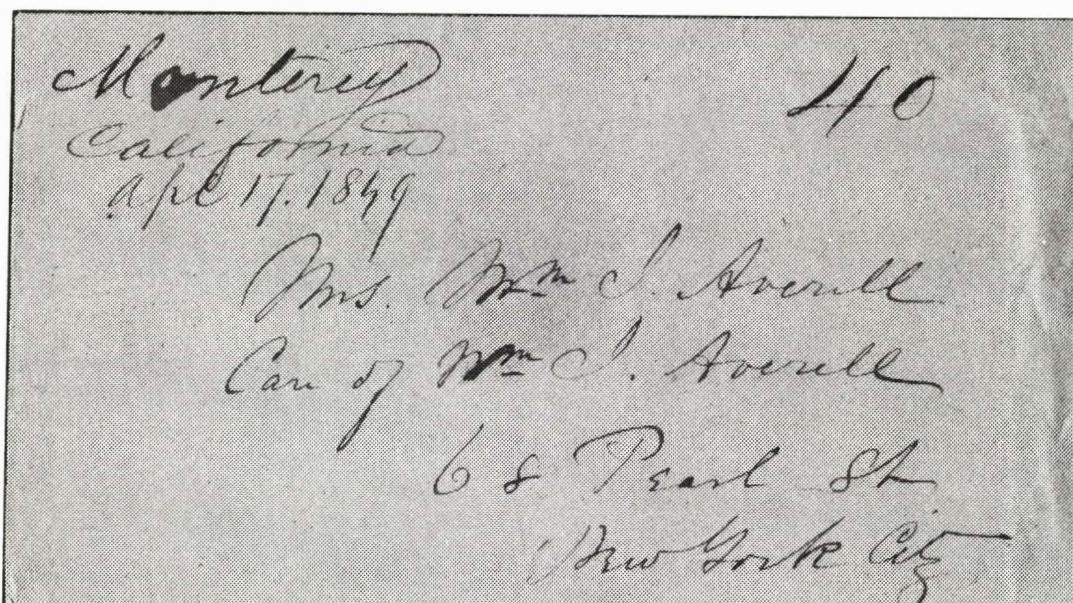 Monterey
California
Apl 17. 1849
40
Mrs. Wm J. Averill
Care of Wm J. Averill
68 Pearl St
New York City